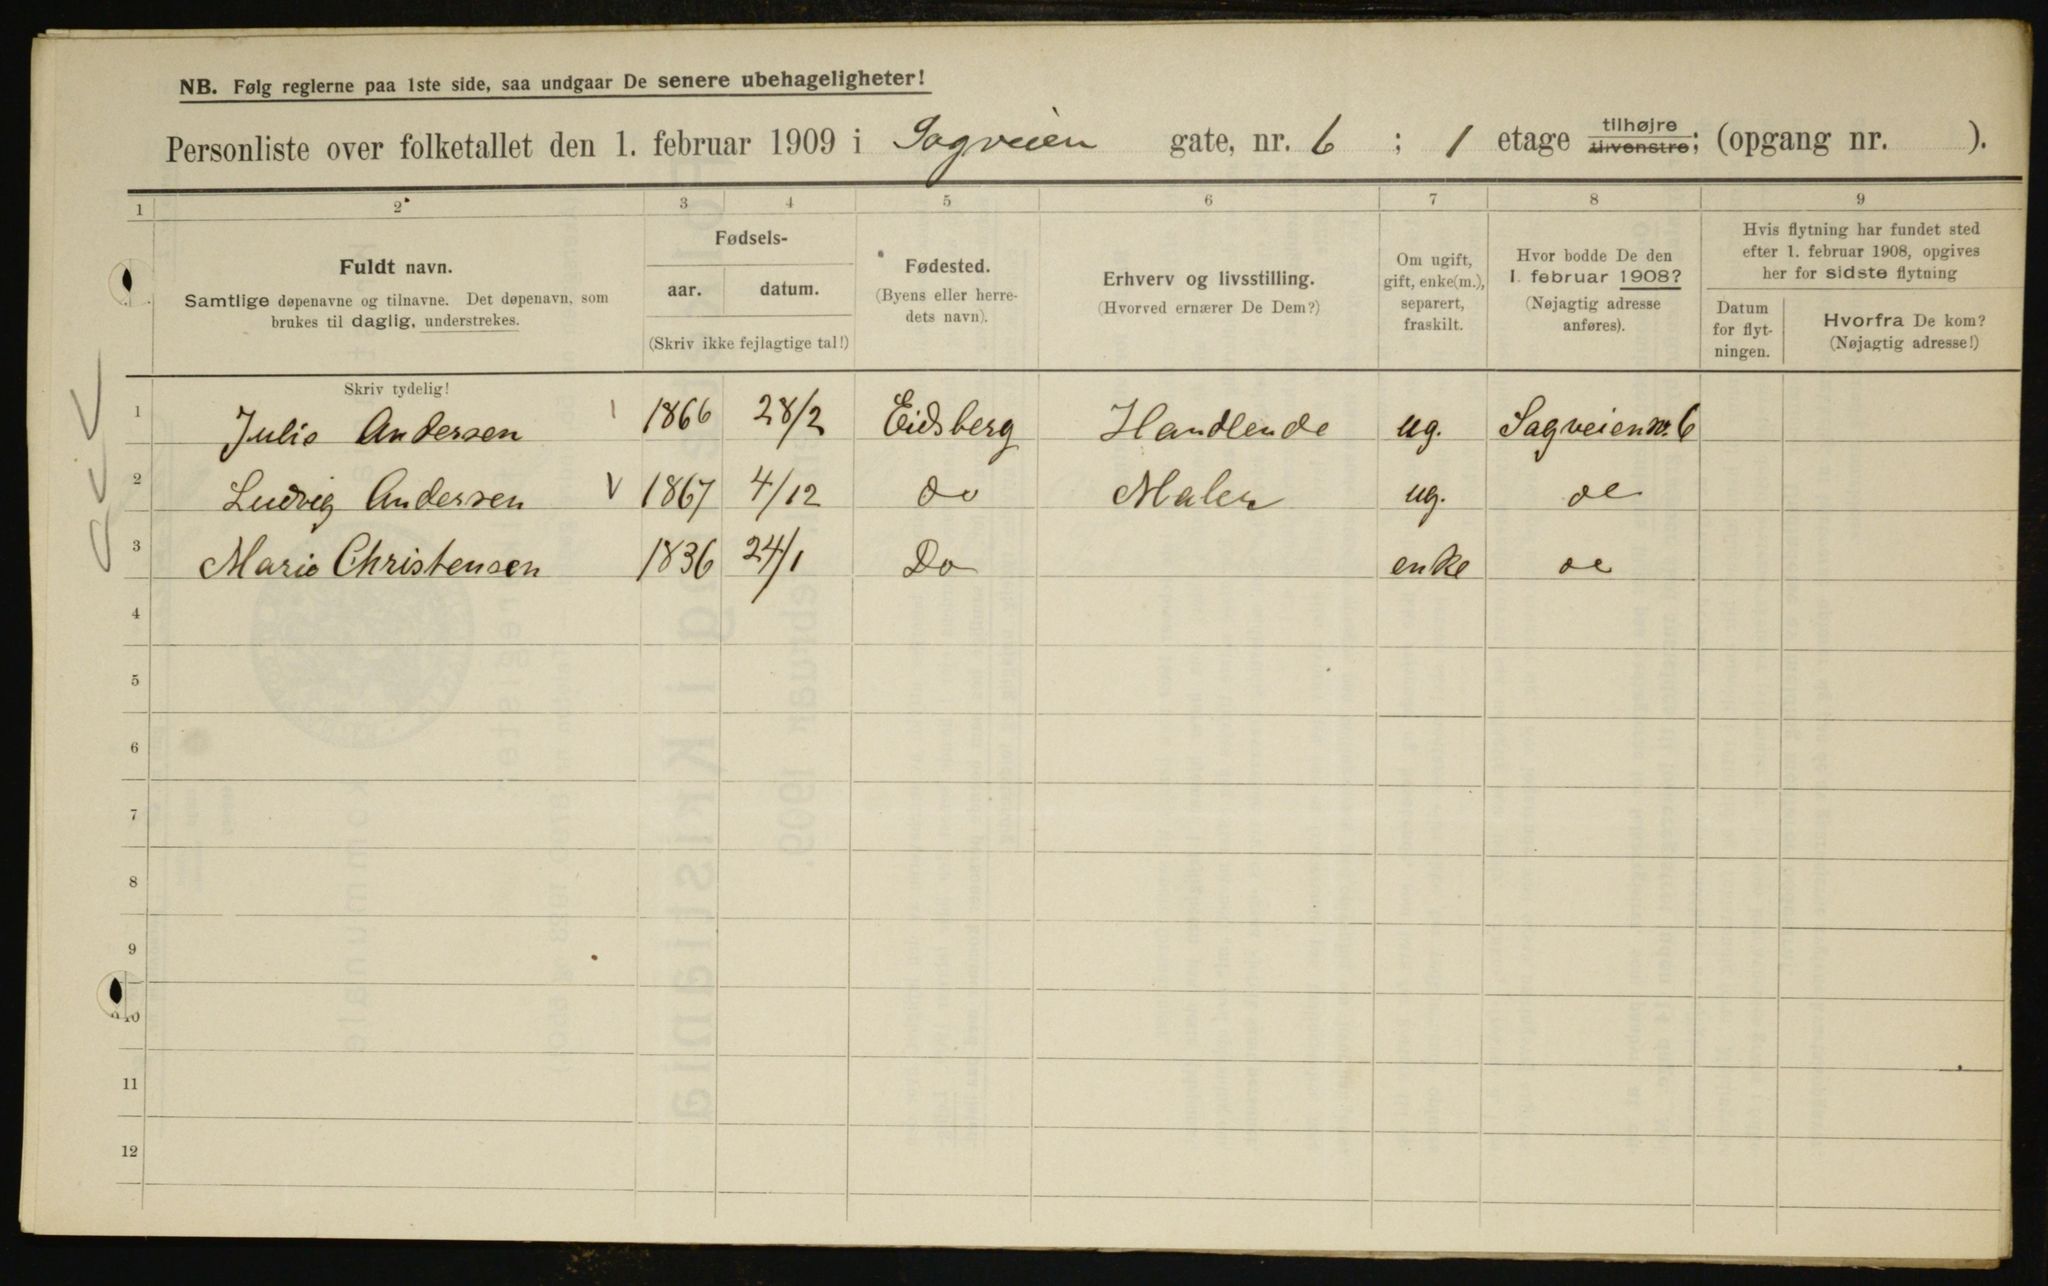 NB. Følg reglerne paa 1ste side, saa undgaar De senere ubehageligheter!
Personliste over folketallet den 1. februar 1909 i Sagveien gate, nr. 6 ; 1 etage tilhøjre tilvenstre; (opgang nr. ).
1 2 3 4 5 6 7 8 9
Fuldt navn.
Samtlige døpenavne og tilnavne. Det døpenavn, som
brukes til daglig, understrekes.
Fødsels-
aar. datum.
(Skriv ikke fejlagtige tal!)
Fødested.
(Byens eller herre-
dets navn).
Erhverv og livsstilling.
(Hvorved ernærer De Dem?)
Om ugift,
gift, enke(m.),
separert,
fraskilt.
Hvor bodde De den
1. februar 1908?
(Nøjagtig adresse
anføres).
Hvis flytning har fundet sted
efter 1. februar 1908, opgives
her for sidste flytning
Datum
for flyt-
ningen.
Hvorfra De kom?
(Nøjagtig adresse!)
Skriv tydelig!
1 Julie Andersen 1866 28/2 Eidsberg Handlende ug. Sagveien nr. 6
2 Ludvig Andersen 1867 4/12 do Maler ug. do
3 Marie Christensen 1836 24/1 Do enke do
4
5
6
7
8
9
10
11
12